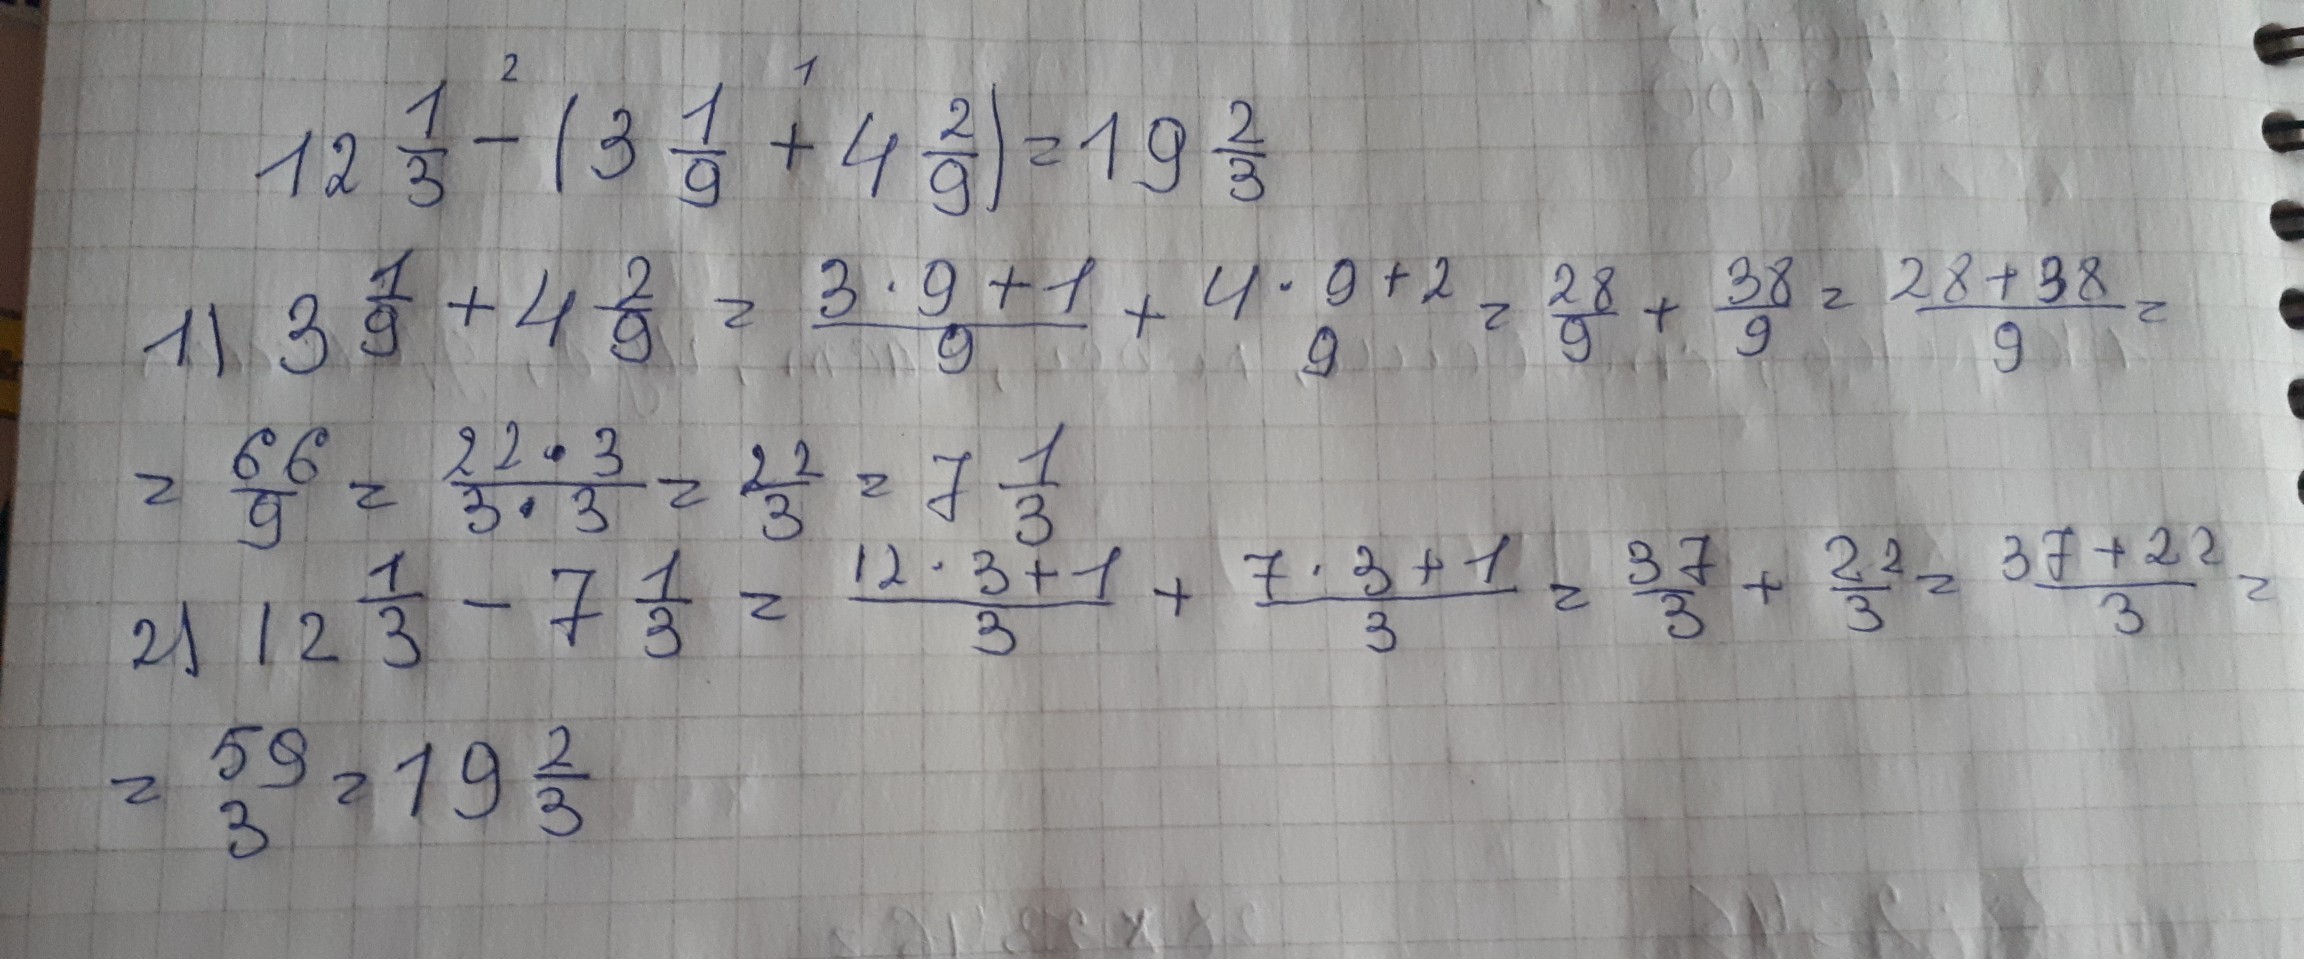 12 1/3 -² (3 1/9 +¹ 4 2/9) = 19 2/3
1) 3 1/9 + 4 2/9 = (3·9+1)/9 + (4·9+2)/9 = 28/9 + 38/9 = (28+38)/9 =
= 66/9 = (22·3)/(3·3) = 22/3 = 7 1/3
2) 12 1/3 - 7 1/3 = (12·3+1)/3 + (7·3+1)/3 = 37/3 + 22/3 = (37+22)/3 =
= 59/3 = 19 2/3